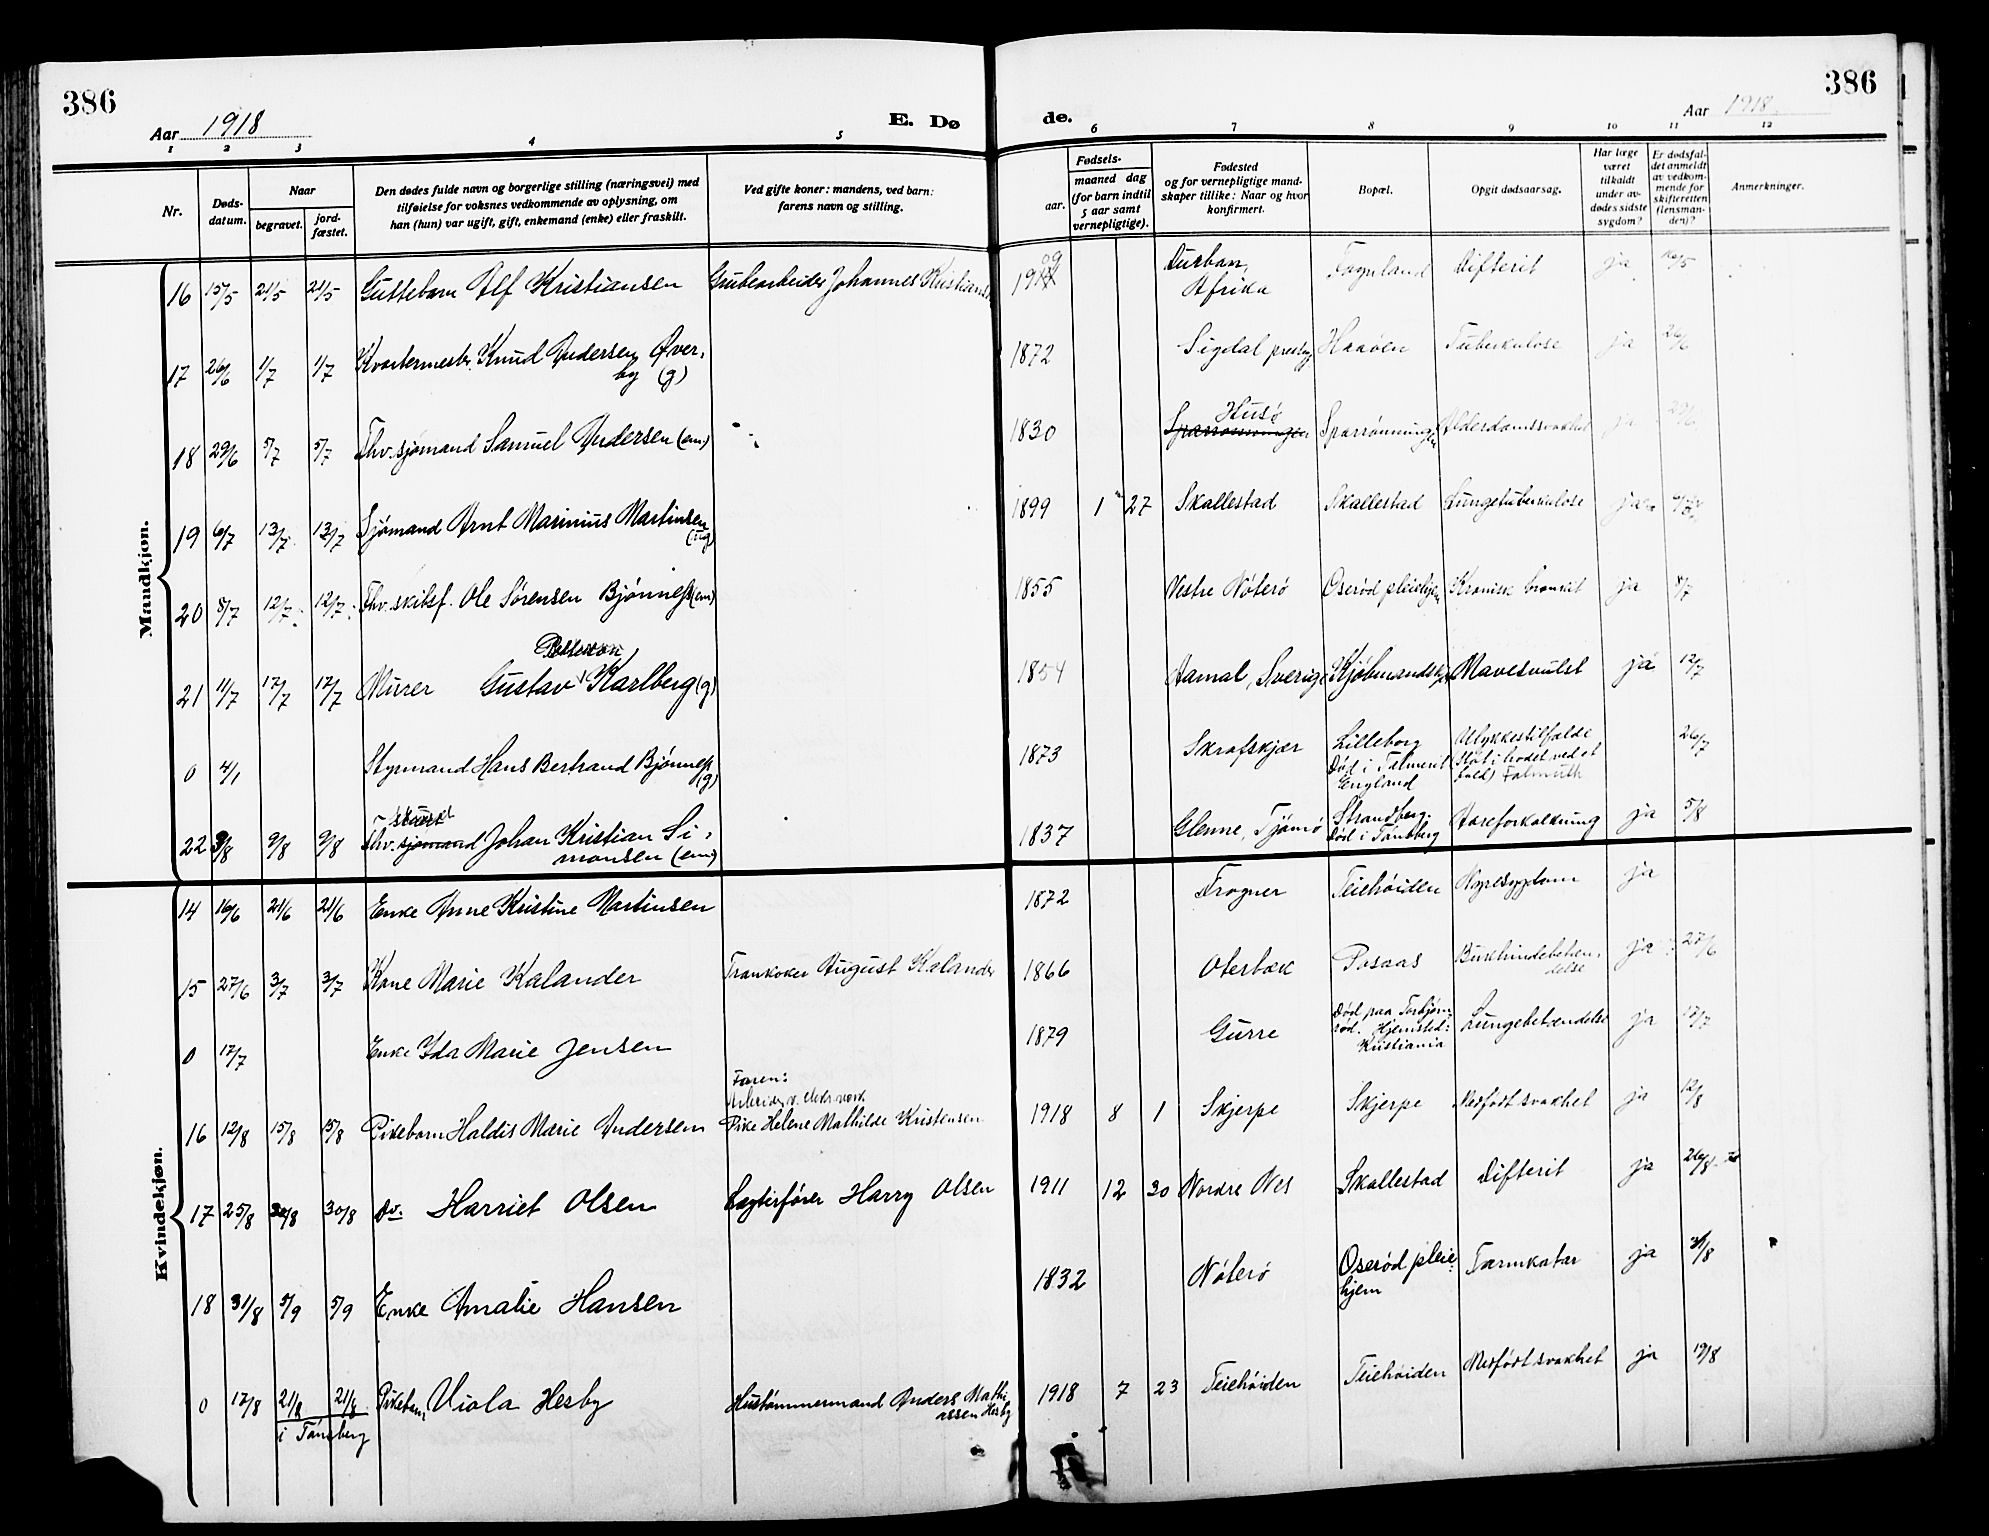 386
Aar 1918
E. Dø
de.
Aar 1918
386
1 2 3 4 5 6 7 8 9 10 11 12
Nr.
Døds-
datum.
Naar
begravet.
jord-
fæstet.
Den dødes fulde navn og borgerlige stilling (næringsvei) med
tilføielse for voksnes vedkommende av oplysning, om
han (hun) var ugift, gift, enkemand (enke) eller fraskilt.
Ved gifte koner: mandens, ved barn:
farens navn og stilling.
Fødsels-
aar.
maaned dag
(for barn indtil
5 aar samt
vernepligtige).
Fødested
og for vernepligtige mand-
skaper tillike: Naar og hvor
konfirmert.
Bopæl.
Opgit dødsaarsag.
Har læge
været
tilkaldt
under av-
dødes sidste
sygdom?
Er dødsfal-
det anmeldt
av vedkom-
mende for
skifteretten
(lensman-
den)?
Anmerkninger.
Mandkjøn.
16 15/5 21/5 21/5 Guttebarn Alf Kristiansen Grubearbeider Johannes Kristians 1909 Durban, Afrika Fagnland Difterit ja 16/5
17 26/6 1/7 1/7 Kvartermestr. Knud Andersen Øver-
by (g) 1872 Sigdal prestegj Haaøen Tuberkulose ja 26/6
18 29/6 5/7 5/7 Fhv. sjømand Samuel Andersen (em) 1830 Husø Sparrønningen Alderdomssvakhet ja 29/6
19 6/7 13/7 13/7 Sjømand Arnt Marinius Martinsen
(ug) 1899 1 27 Skallestad Skallestad Lungetuberkulose ja
20 8/7 12/7 12/7 Fhv. skibsf. Ole Sørensen Bjønness (em) 1855 Vestre Nøterø Oserød pleiehjem Kronisk bronkit ja 8/7
Petterson
21 11/7 17/7 17/7 Murer Gustav Karlberg (g) 1854 Aamal, Sverige Kjøbmandskj Mavesvulst ja 12/7
0 4/1 Styrmand Hans Bertrand Bjønness
(g) 1873 Skrafskjær Lilleborg
Død i Falment
England Ulykkestilfælde
(Støt i hodet ved et
fald) Falmuth 26/7
22 3/8 9/8 9/8 Fhv. sjømand Johan Kristian Si-
monsen (em) 1837 Glenne, Tjømø Strandberg.
Død i Tønsberg Aareforkalkning ja 5/8
Kvindekjøn.
14 16/6 21/6 21/6 Enke Anne Kristine Martinsen 1872 Frogner Teiehøiden Nyresygdom ja
15 27/6 3/7 3/7 Kone Marie Kalander Trankoker August Kalander 1866 Oterbæk Posaas Bukhindebetæn-
delse ja 27/6
0 17/7 Enke Ida Marie Jensen 1879 Gurre Død paa Torbjøn
rød. Hjemsted:
Kristiania Lungebetændelse ja 17/7
Faren:
Arbeider v. elektr. verk
16 12/8 15/8 15/8 Pikebarn Haldis Marie Andersen Pike Helene Mathilde Kristensen 1918 8 1 Skjerpe Skjerpe Medfødt svakhet ja 12/8
17 25/8 30/8 30/8 Do. Harriet Olsen Lægterfører Harry Olsen 1911 12 30 Nordre Nes Skallestad Difterit ja 26/8
18 31/8 5/9 5/9 Enke Amalie Hansen 1832 Nøterø Oserød pleie-
hjem Tarmkatar ja 31/8
0 17/8 21/8 21/8 Pikebarn Viola Hesby Hustømmermand Anders Mathi
assen Hesby 1918 7 23 Teiehøiden Teiehøiden Medfødt svakhet ja 19/8
i Tønsberg